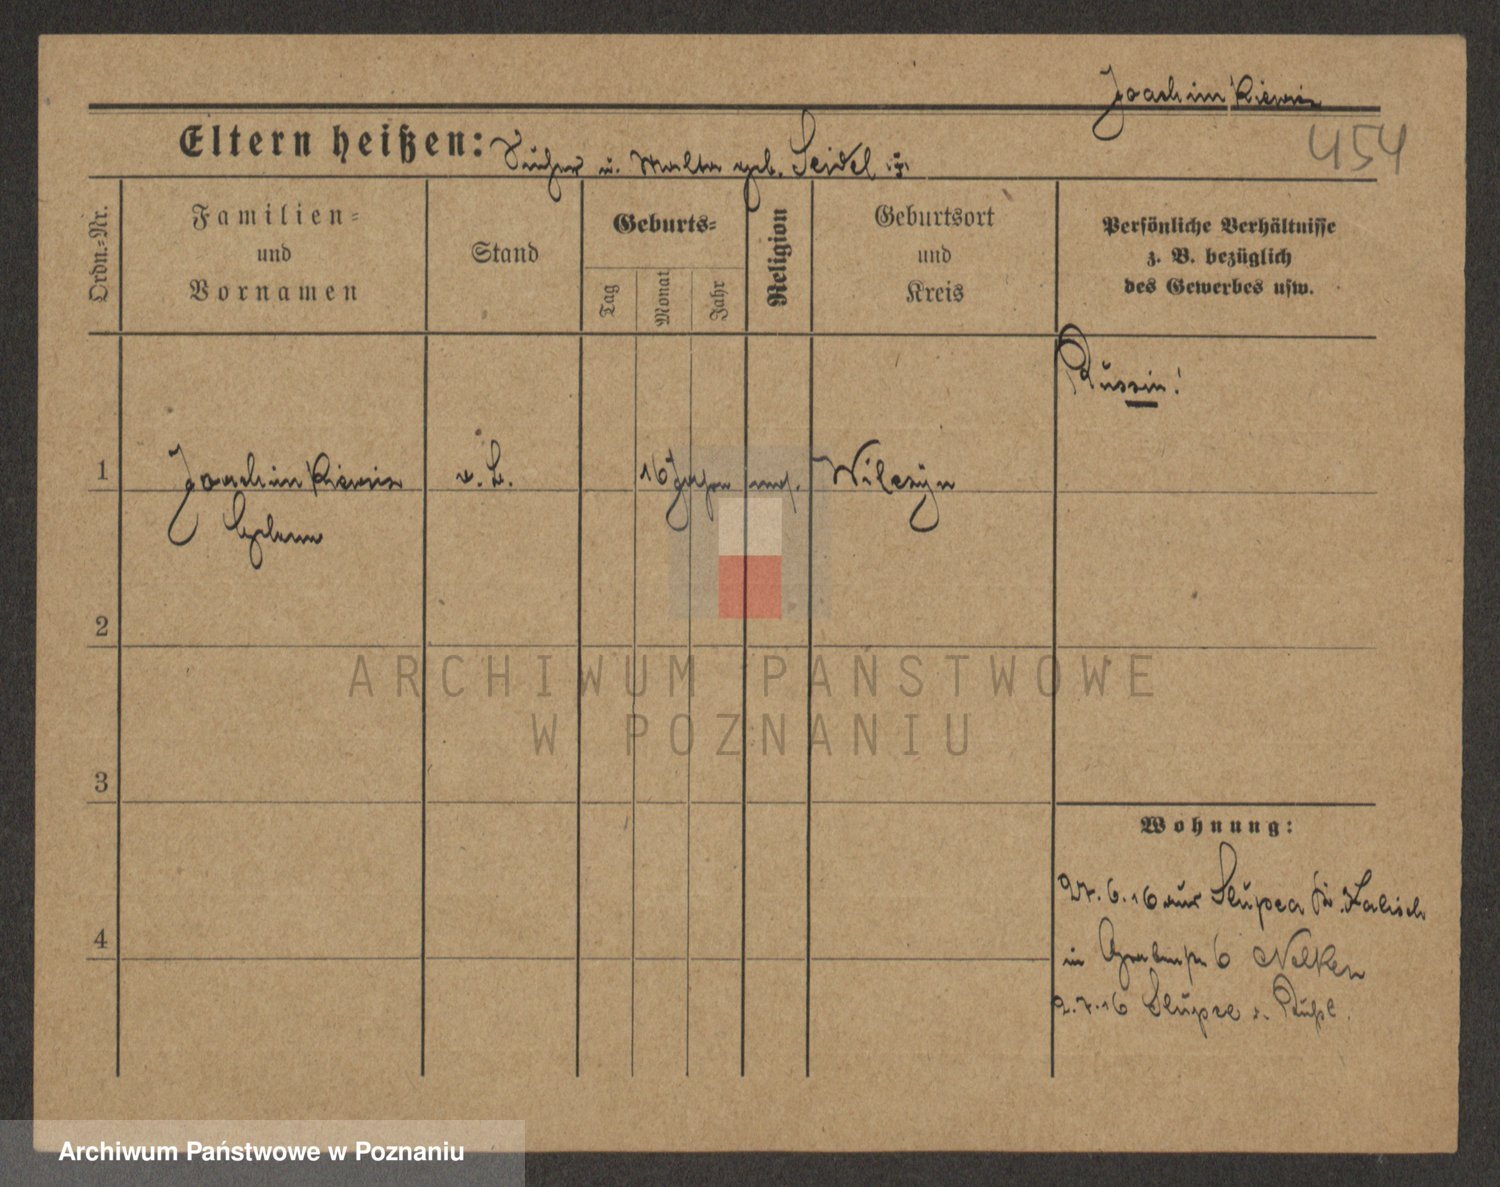 Joachimkiewicz
454
Eltern heißen: u. Malka geb. Seidel
Ordn.=Nr.
Familien=
und
Vornamen
Stand
Geburts=
Tag
Monat
Jahr
Religion
Geburtsort
und
Kreis
Persönliche Verhältnisse
z. B. bezüglich
des Gewerbes usw.
Russin!
1 Joachimkiewicz 16 Jahre mos. Wilczyn
2
3
4
Wohnung:
27.6.16 aus Slupca Kr. Kalisch
in 6 Nelken
2.7.16 Slupca
ARCHIWUM PAŃSTWOWE
W POZNANIU
Archiwum Państwowe w Poznaniu